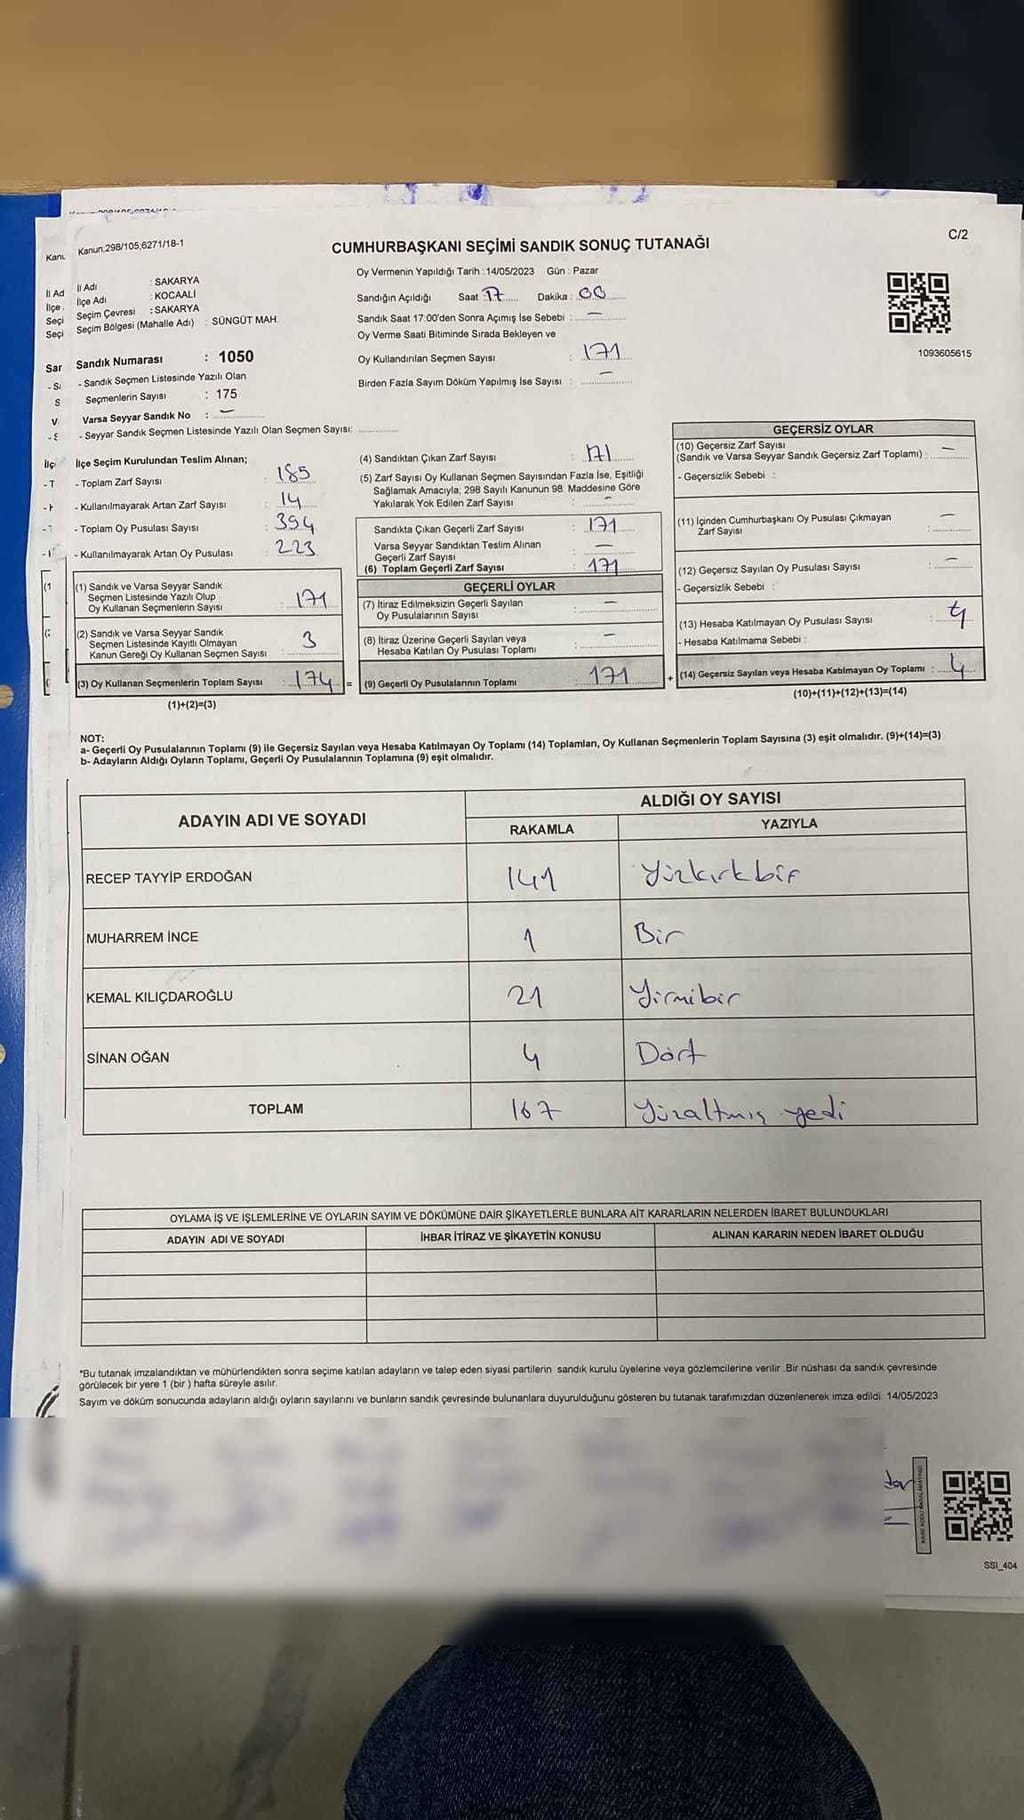 Kanun,298/105,6271/18-1
C/2
CUMHURBAŞKANI SEÇİMİ SANDIK SONUÇ TUTANAĞI
İl Adı : SAKARYA
İlçe Adı : KOCAALİ
Seçim Çevresi : SAKARYA
Seçim Bölgesi (Mahalle Adı) : SÜNGÜT MAH.
Sandık Numarası : 1050
- Sandık Seçmen Listesinde Yazılı Olan
Seçmenlerin Sayısı : 175
Varsa Seyyar Sandık No : –
- Seyyar Sandık Seçmen Listesinde Yazılı Olan Seçmen Sayısı:
Oy Vermenin Yapıldığı Tarih :14/05/2023 Gün : Pazar
Sandığın Açıldığı Saat :17 Dakika : 00
Sandık Saat 17:00'den Sonra Açımış İse Sebebi : –
Oy Verme Saati Bitiminde Sırada Bekleyen ve
Oy Kullandırılan Seçmen Sayısı : 171
Birden Fazla Sayım Döküm Yapılmış İse Sayısı : –
1093605615
İlçe Seçim Kurulundan Teslim Alınan;
- Toplam Zarf Sayısı : 185
- Kullanılmayarak Artan Zarf Sayısı : 14
- Toplam Oy Pusulası Sayısı : 394
- Kullanılmayarak Artan Oy Pusulası : 223
(1) Sandık ve Varsa Seyyar Sandık
Seçmen Listesinde Yazılı Olup
Oy Kullanan Seçmenlerin Sayısı : 171
(2) Sandık ve Varsa Seyyar Sandık
Seçmen Listesinde Kayıtlı Olmayan
Kanun Gereği Oy Kullanan Seçmen Sayısı : 3
(3) Oy Kullanan Seçmenlerin Toplam Sayısı : 174 =
(1)+(2)=(3)
(4) Sandıktan Çıkan Zarf Sayısı : 171
(5) Zarf Sayısı Oy Kullanan Seçmen Sayısından Fazla İse, Eşitliği
Sağlamak Amacıyla; 298 Sayılı Kanunun 98. Maddesine Göre
Yakılarak Yok Edilen Zarf Sayısı : –
Sandıkta Çıkan Geçerli Zarf Sayısı : 171
Varsa Seyyar Sandıktan Teslim Alınan
Geçerli Zarf Sayısı : –
(6) Toplam Geçerli Zarf Sayısı : 171
GEÇERLİ OYLAR
(7) İtiraz Edilmeksizin Geçerli Sayılan
Oy Pusulalarının Sayısı : –
(8) İtiraz Üzerine Geçerli Sayılan veya
Hesaba Katılan Oy Pusulası Toplamı : –
(9) Geçerli Oy Pusulalarının Toplamı : 171 +
GEÇERSİZ OYLAR
(10) Geçersiz Zarf Sayısı
(Sandık ve Varsa Seyyar Sandık Geçersiz Zarf Toplamı) : –
- Geçersizlik Sebebi :
(11) İçinden Cumhurbaşkanı Oy Pusulası Çıkmayan
Zarf Sayısı : –
(12) Geçersiz Sayılan Oy Pusulası Sayısı : –
- Geçersizlik Sebebi :
(13) Hesaba Katılmayan Oy Pusulası Sayısı : 4
- Hesaba Katılmama Sebebi :
(14) Geçersiz Sayılan veya Hesaba Katılmayan Oy Toplamı : 4
(10)+(11)+(12)+(13)=(14)
NOT:
a- Geçerli Oy Pusulalarının Toplamı (9) ile Geçersiz Sayılan veya Hesaba Katılmayan Oy Toplamı (14) Toplamları, Oy Kullanan Seçmenlerin Toplam Sayısına (3) eşit olmalıdır. (9)+(14)=(3)
b- Adayların Aldığı Oyların Toplamı, Geçerli Oy Pusulalarının Toplamına (9) eşit olmalıdır.
ADAYIN ADI VE SOYADI ALDIĞI OY SAYISI
RAKAMLA YAZIYLA
RECEP TAYYİP ERDOĞAN 141 Yüzkırkbir
MUHARREM İNCE 1 Bir
KEMAL KILIÇDAROĞLU 21 Yirmibir
SİNAN OĞAN 4 Dört
TOPLAM 167 Yüzaltmış yedi
OYLAMA İŞ VE İŞLEMLERİNE VE OYLARIN SAYIM VE DÖKÜMÜNE DAİR ŞİKAYETLERLE BUNLARA AİT KARARLARIN NELERDEN İBARET BULUNDUKLARI
ADAYIN ADI VE SOYADI İHBAR İTİRAZ VE ŞİKAYETİN KONUSU ALINAN KARARIN NEDEN İBARET OLDUĞU
*Bu tutanak imzalandıktan ve mühürlendikten sonra seçime katılan adayların ve talep eden siyasi partilerin sandık kurulu üyelerine veya gözlemcilerine verilir .Bir nüshası da sandık çevresinde
görülecek bir yere 1 (bir ) hafta süreyle asılır.
Sayım ve döküm sonucunda adayların aldığı oyların sayılarını ve bunların sandık çevresinde bulunanlara duyurulduğunu gösteren bu tutanak tarafımızdan düzenlenerek imza edildi. 14/05/2023
SSI_404